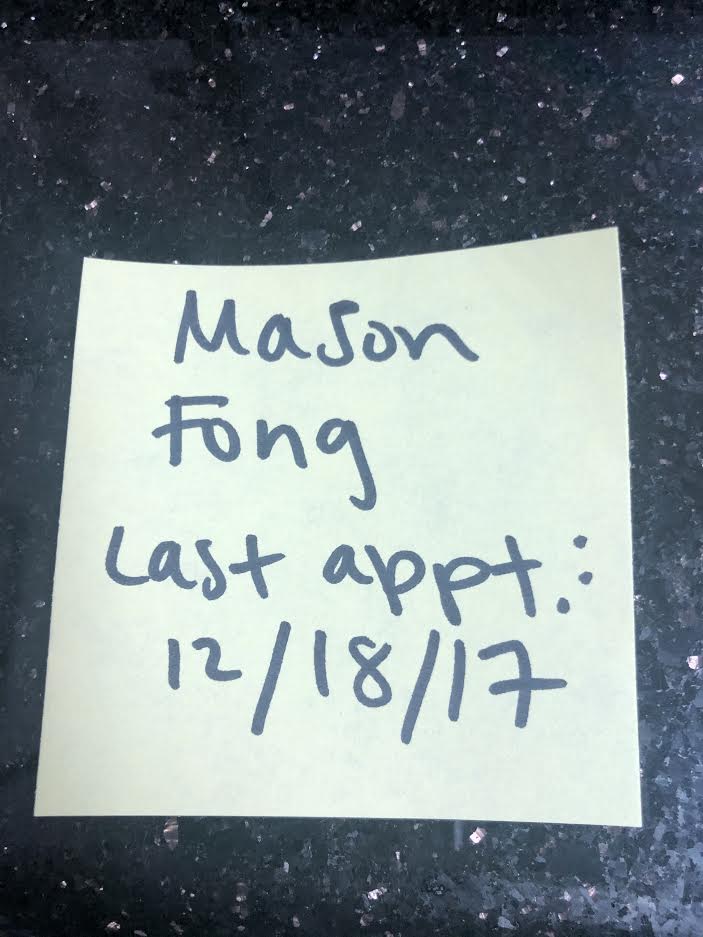 Mason
Fong
Last appt.:
12/18/17